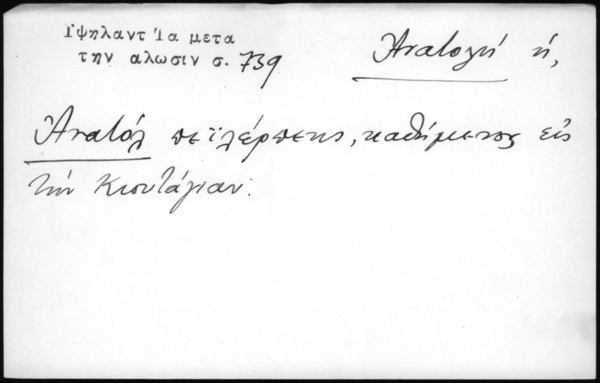 Ὑψηλαντ Ἰα μετα
την αλωσιν σ. 739
Ἀνατολή ἡ,
Ἀνατόλ πεϊλέρπεης, καθήμενος εἰς
τὴν Κιουτάγιαν.